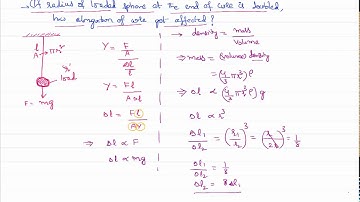 If radius of loaded sphere at the end of wire is doubled,
how elongation of wire get affected?
l
A → πr²
load
F = mg
Y = F
A
Δl
l
Y = Fl
AΔl
Δl = Fl
AY
⇒ Δl ∝ F
Δl ∝ mg
density = mass
volume
⇒ mass = (volume) density
= (4/3 πr³) ρ
⇒ Δl ∝ (4/3 πr³) ρ g
Δl ∝ r³
Δl₁/Δl₂ = (r₁/r₂)³ = (r/2r)³ = 1/8
Δl₁/Δl₂ = 1/8
Δl₂ = 8Δl₁